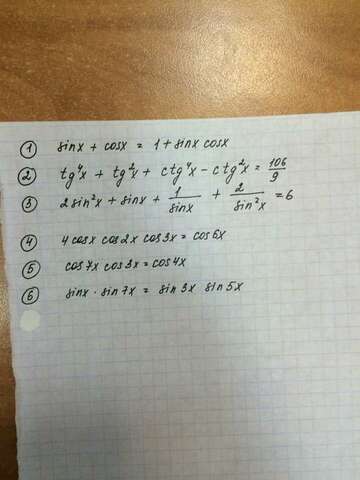 1 sinx + cosx = 1 + sinx cosx
2 tg⁴x + tg²x + ctg⁴x - ctg²x = 106/9
3 2 sin²x + sinx + 1/sinx + 2/sin²x = 6
4 4 cosx cos2x cos3x = cos6x
5 cos7x cos3x = cos4x
6 sinx · sin7x = sin3x sin5x